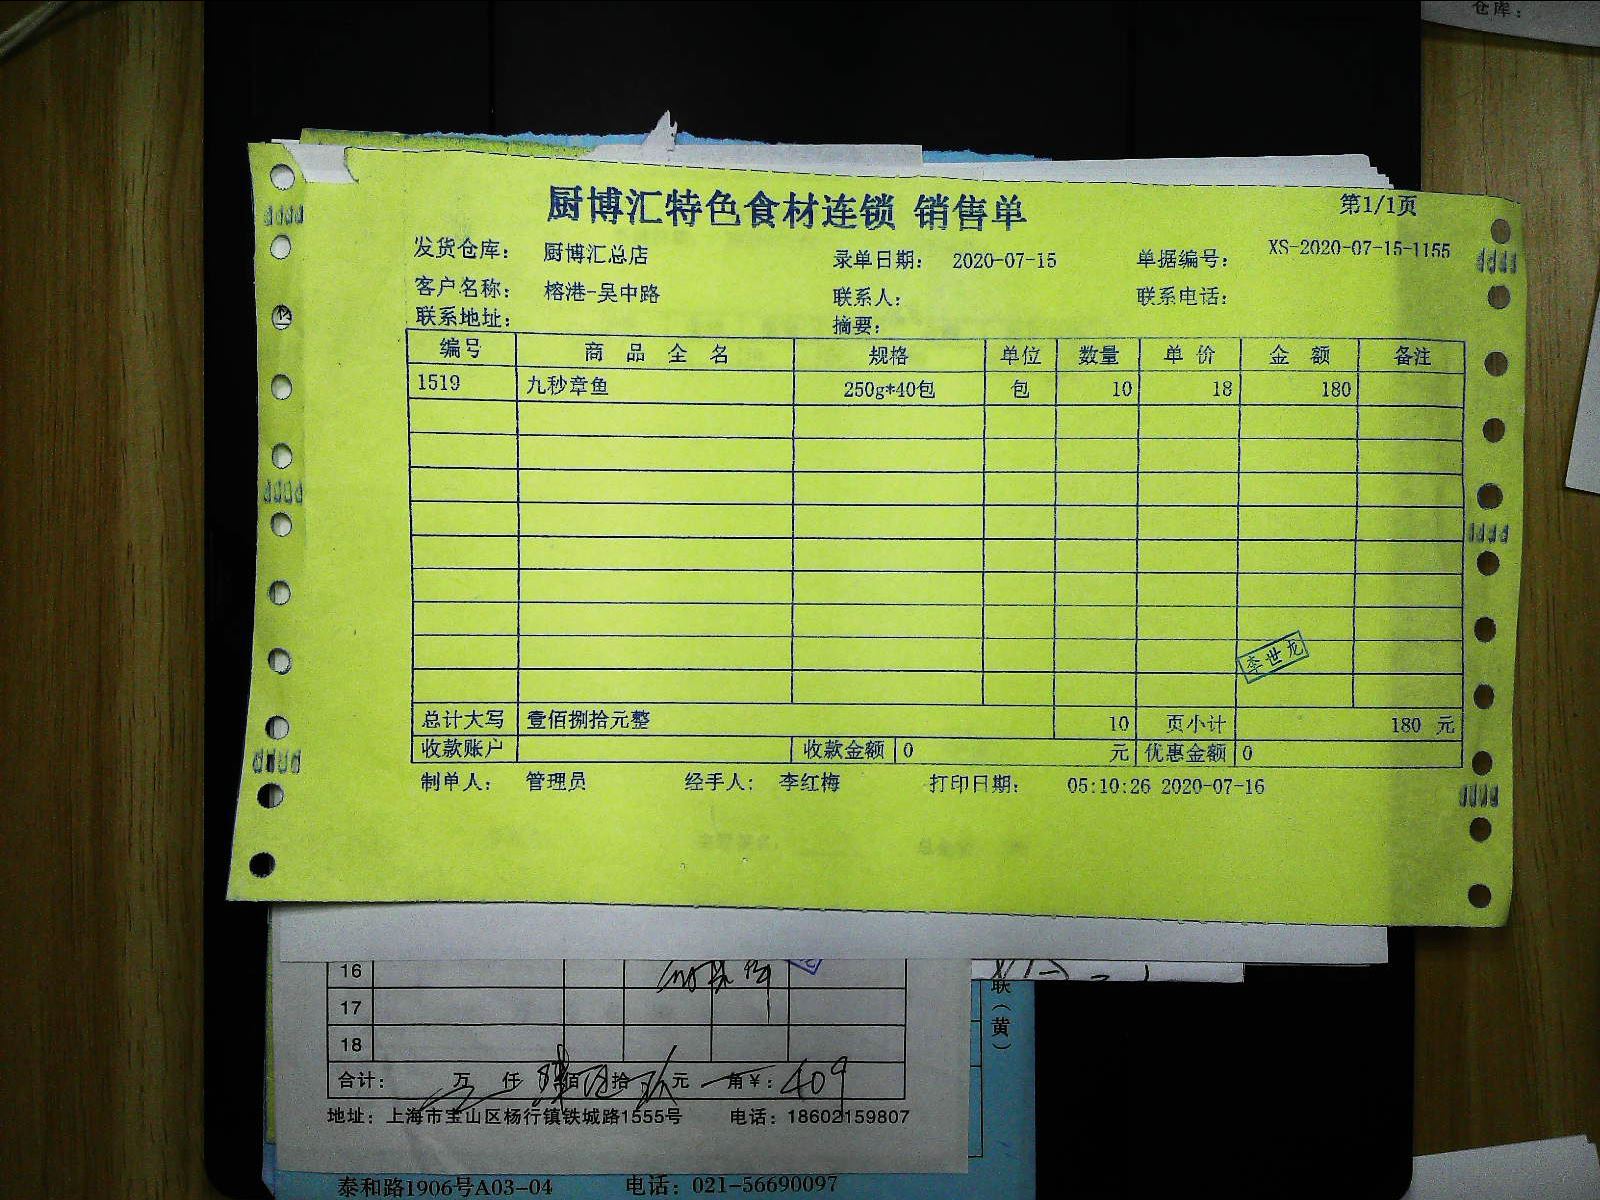 仓库：
厨博汇特色食材连锁 销售单
第1/1页
发货仓库： 厨博汇总店 录单日期： 2020-07-15 单据编号： XS-2020-07-15-1155
客户名称： 榕港-吴中路 联系人： 联系电话：
联系地址： 摘要：
编号 商品全名 规格 单位 数量 单价 金额 备注
1519 九秒章鱼 250g*40包 包 10 18 180
李世龙
总计大写 壹佰捌拾元整 10 页小计 180 元
收款账户 收款金额 0 元 优惠金额 0
制单人： 管理员 经手人： 李红梅 打印日期： 05:10:26 2020-07-16
16
17
18
合计： 万 仟 佰 拾 元 角 ¥： 409
联（黄）
地址：上海市宝山区杨行镇铁城路1555号 电话：18602159807
泰和路1906号A03-04 电话：021-56690097